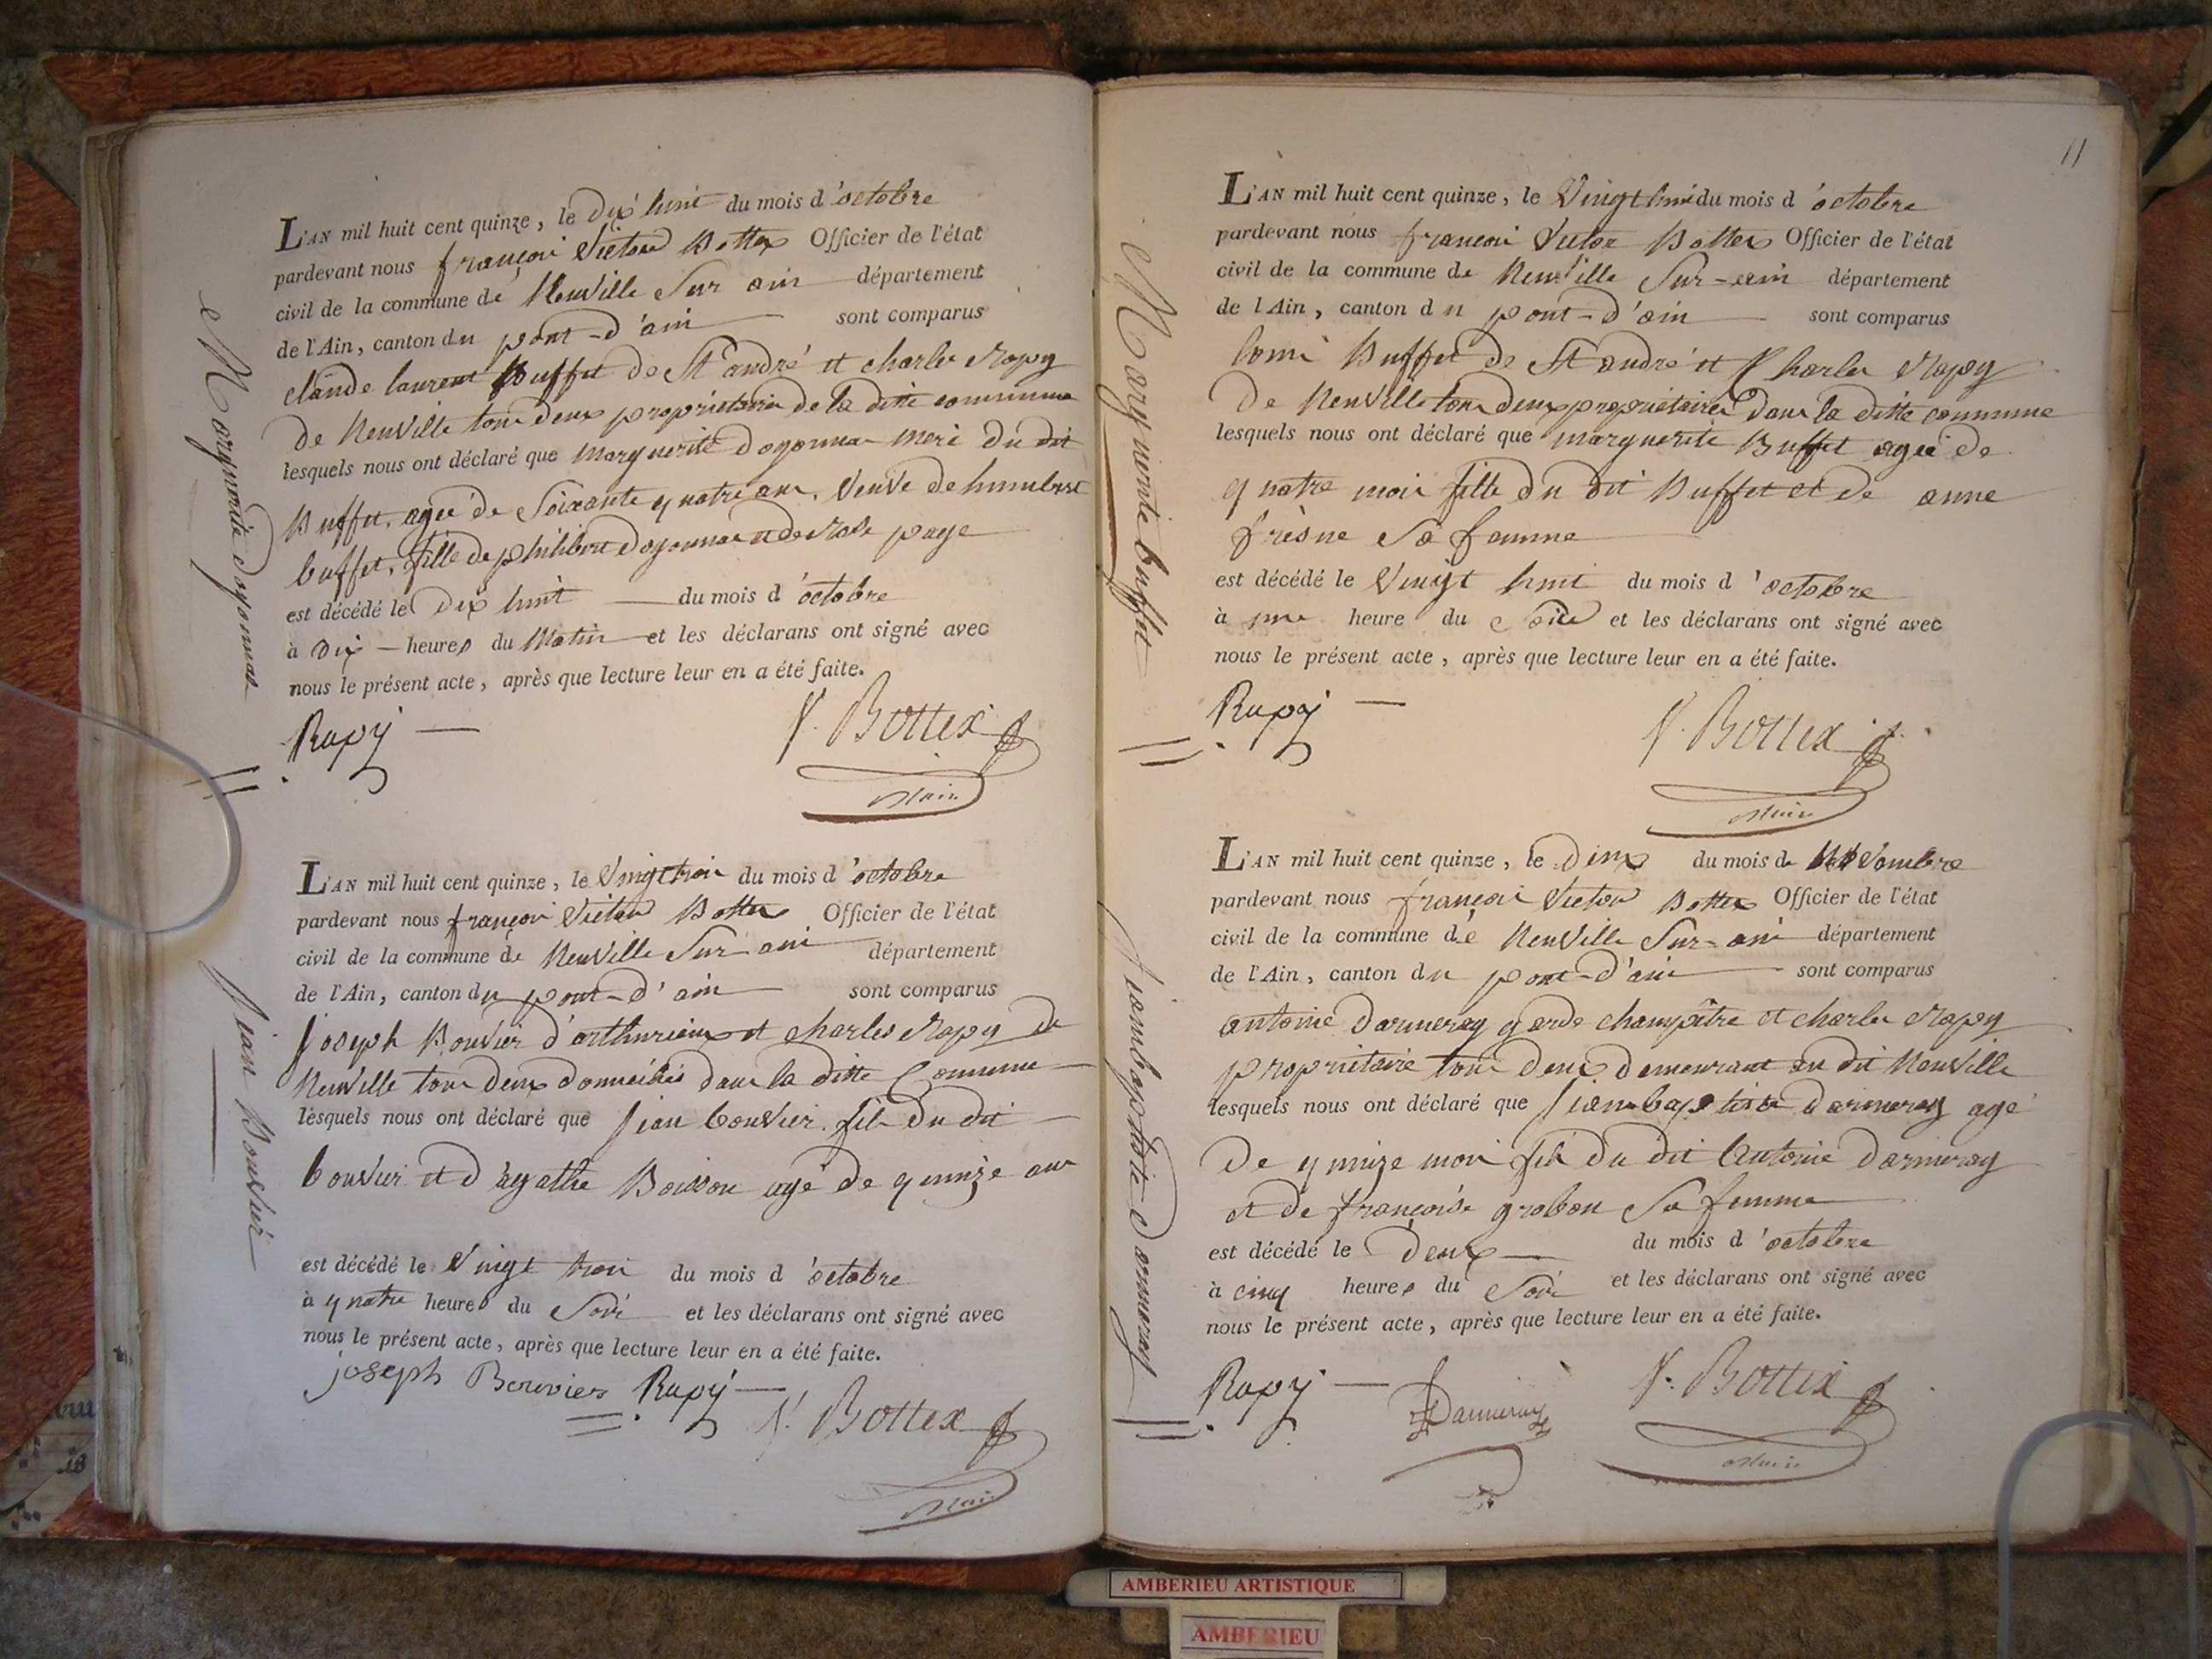 L'AN mil huit cent quinze, le dix huit du mois d'octobre
pardevant nous françois Victor Bottex Officier de l'état
civil de la commune de Neuville Sur ain département
de l'Ain, canton du pont-d'ain sont comparus
claude laurent Buffet de St andré et charles Rapy
de Neuville tous deux propriétaires de la ditte commune
lesquels nous ont déclaré que marguerite doyonnax mere du dit
Buffet, agée de Soixante quatre ans, Veuve de humbert
buffet, fille de philibert doyonnax et de Rose page
est décédé le dix huit du mois d'octobre
à dix heures du Matin et les déclarans ont signé avec
nous le présent acte, après que lecture leur en a été faite.
Rapy
V. Bottex
Maire
Marguerite doyonnax
L'AN mil huit cent quinze, le Vingt trois du mois d'octobre
pardevant nous françois Victor Bottex Officier de l'état
civil de la commune de Neuville Sur ain département
de l'Ain, canton du pont-d'ain sont comparus
Joseph Bouvier d'arthurieux et charles Rapy de
Neuville tous deux domiciliés dans la ditte Commune
lesquels nous ont déclaré que Jean bouvier fils du dit
bouvier et d'agathe Boisson agé de quinze ans
est décédé le Vingt trois du mois d'octobre
à quatre heures du Soir et les déclarans ont signé avec
nous le présent acte, après que lecture leur en a été faite.
joseph Bouvier Rapy
V. Bottex
Maire
Jean Bouvier
11
L'AN mil huit cent quinze, le Vingt huit du mois d'octobre
pardevant nous françois Victor Bottex Officier de l'état
civil de la commune de Neuville Sur-ain département
de l'Ain, canton du pont-d'ain sont comparus
louis Buffet de St andré et Charles Rapy
de Neuville tous deux propriétaires dans la ditte commune
lesquels nous ont déclaré que marguerite Buffet agée de
quatre mois fille du dit Buffet et de anne
frèsne Sa femme
est décédé le Vingt huit du mois d'octobre
à une heure du Soir et les déclarans ont signé avec
nous le présent acte, après que lecture leur en a été faite.
Rapy
V. Bottex
Maire
Marguerite buffet
L'AN mil huit cent quinze, le deux du mois de Novembre
pardevant nous françois Victor Bottex Officier de l'état
civil de la commune de Neuville Sur-ain département
de l'Ain, canton du pont-d'ain sont comparus
antoine darmeray garde champêtre et charles Rapy
propriétaire tous deux demeurant au dit Neuville
lesquels nous ont déclaré que Jean baptiste darmeray agé
de quinze mois fils du dit Antoine darmeray
et de françoise grobon Sa femme
est décédé le deux du mois d'octobre
à cinq heures du Soir et les déclarans ont signé avec
nous le présent acte, après que lecture leur en a été faite.
Rapy
Darmeray
V. Bottex
Maire
Jean baptiste darmeray
AMBERIEU ARTISTIQUE
AMBERIEU